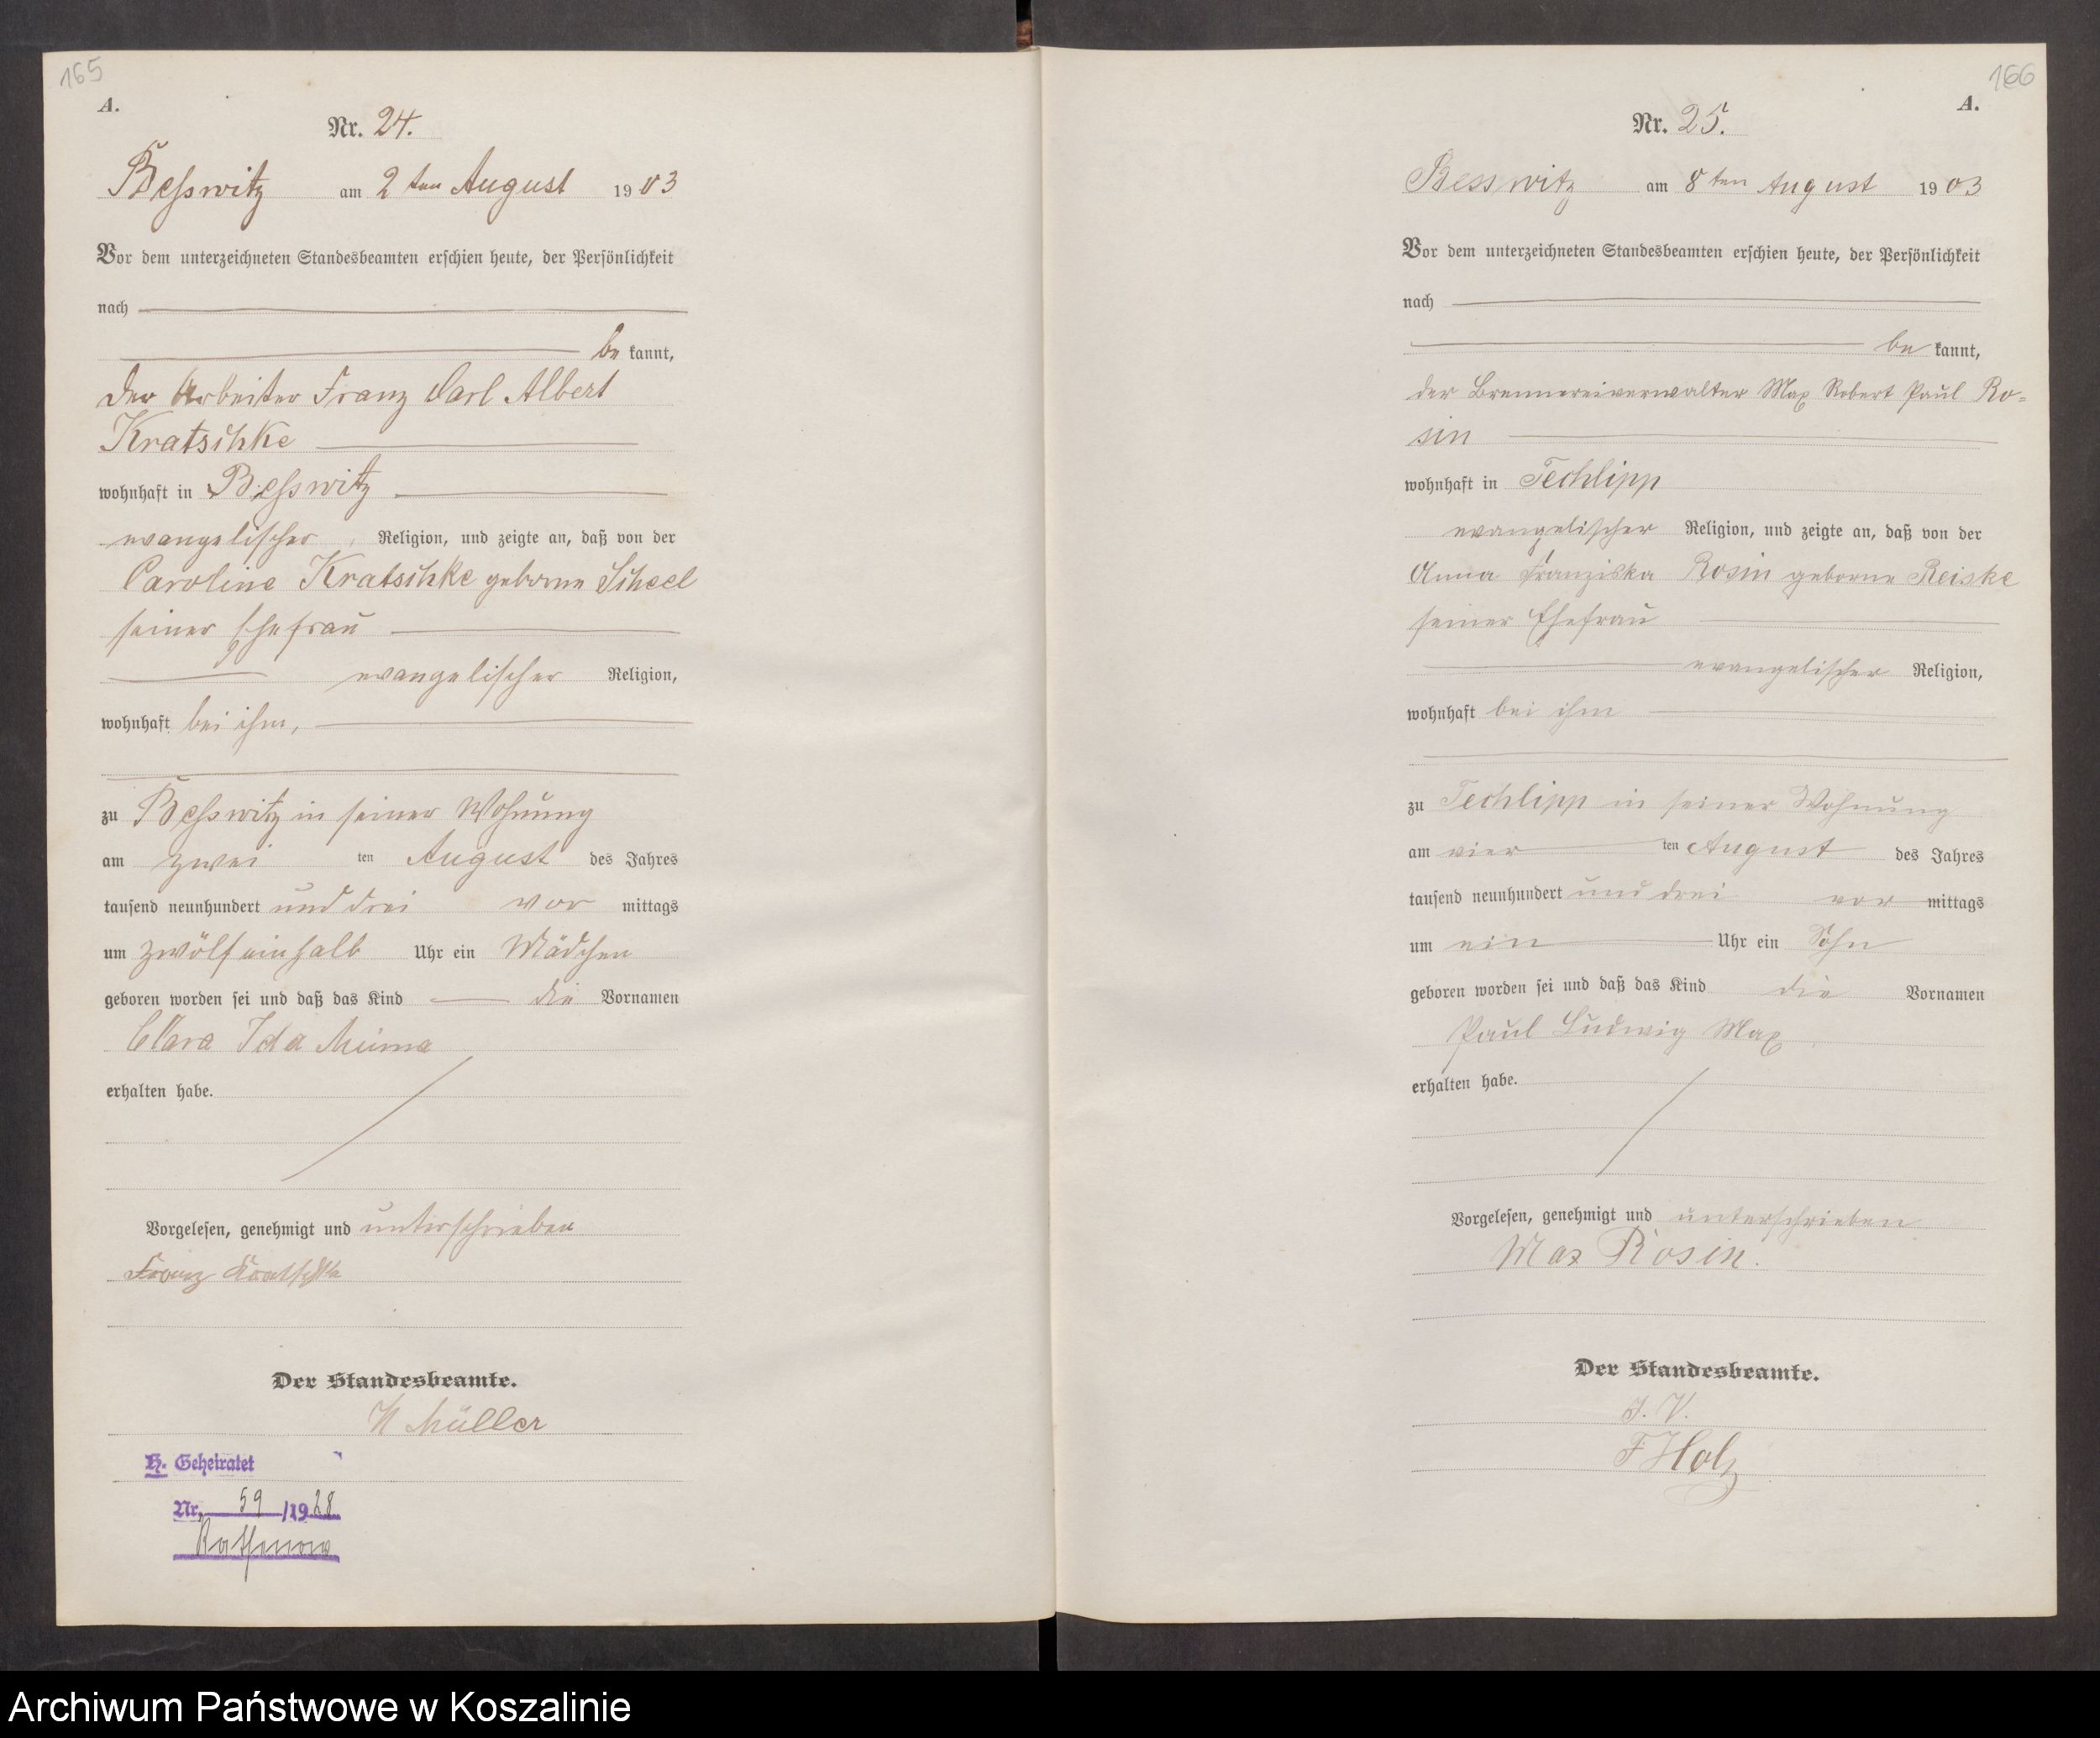 165
A.
Nr. 24.
Besswitz am 2ten August 1903
Vor dem unterzeichneten Standesbeamten erschien heute, der Persönlichkeit
nach
be kannt,
der Arbeiter Franz Carl Albert
Kratschke
wohnhaft in Besswitz
evangelischer Religion, und zeigte an, daß von der
Caroline Kratschke geborne Scheel
seiner Ehefrau
evangelischer Religion,
wohnhaft bei ihm,
zu Besswitz in seiner Wohnung
am zwei ten August des Jahres
tausend neunhundert und drei vor mittags
um zwölf einhalb Uhr ein Mädchen
geboren worden sei und daß das Kind die Vornamen
Clara Ida Minna
erhalten habe.
Vorgelesen, genehmigt und unterschrieben
Franz Kratschke
Der Standesbeamte.
Müller
H. Geheiratet
Nr. 59 /1928
Rathenow
166
A.
Nr. 25.
Besswitz am 8ten August 1903
Vor dem unterzeichneten Standesbeamten erschien heute, der Persönlichkeit
nach
be kannt,
der Brennereiverwalter Max Robert Paul Ro=
sin
wohnhaft in Techlipp
evangelischer Religion, und zeigte an, daß von der
Anna Franziska Rosin geborne Reiske
seiner Ehefrau
evangelischer Religion,
wohnhaft bei ihm
zu Techlipp in seiner Wohnung
am vier ten August des Jahres
tausend neunhundert und drei vor mittags
um ein Uhr ein Sohn
geboren worden sei und daß das Kind die Vornamen
Paul Ludwig Max
erhalten habe.
Vorgelesen, genehmigt und unterschrieben
Max Rosin.
Der Standesbeamte.
J. V.
F Holz
Archiwum Państwowe w Koszalinie